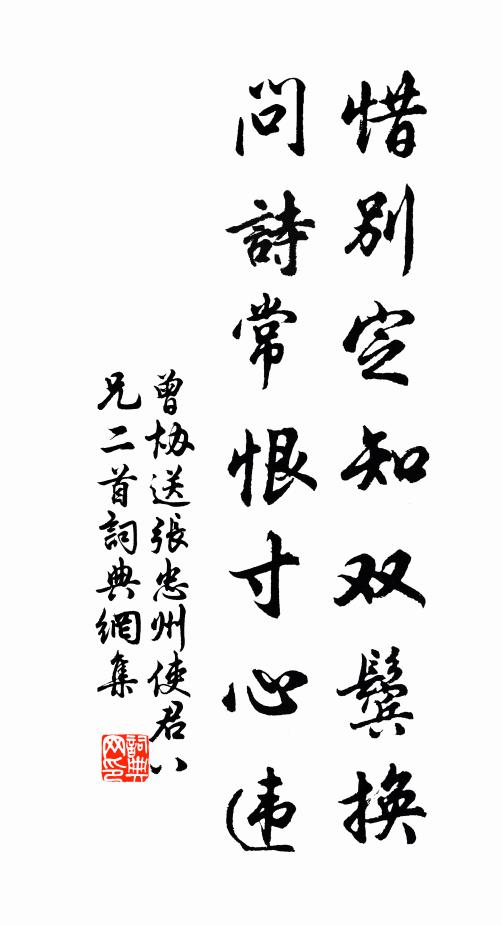 惜别定知双鬓换
问詩常恨寸心违
曾协送張忠州使君八
兄二首詞典網集
詞典
网印